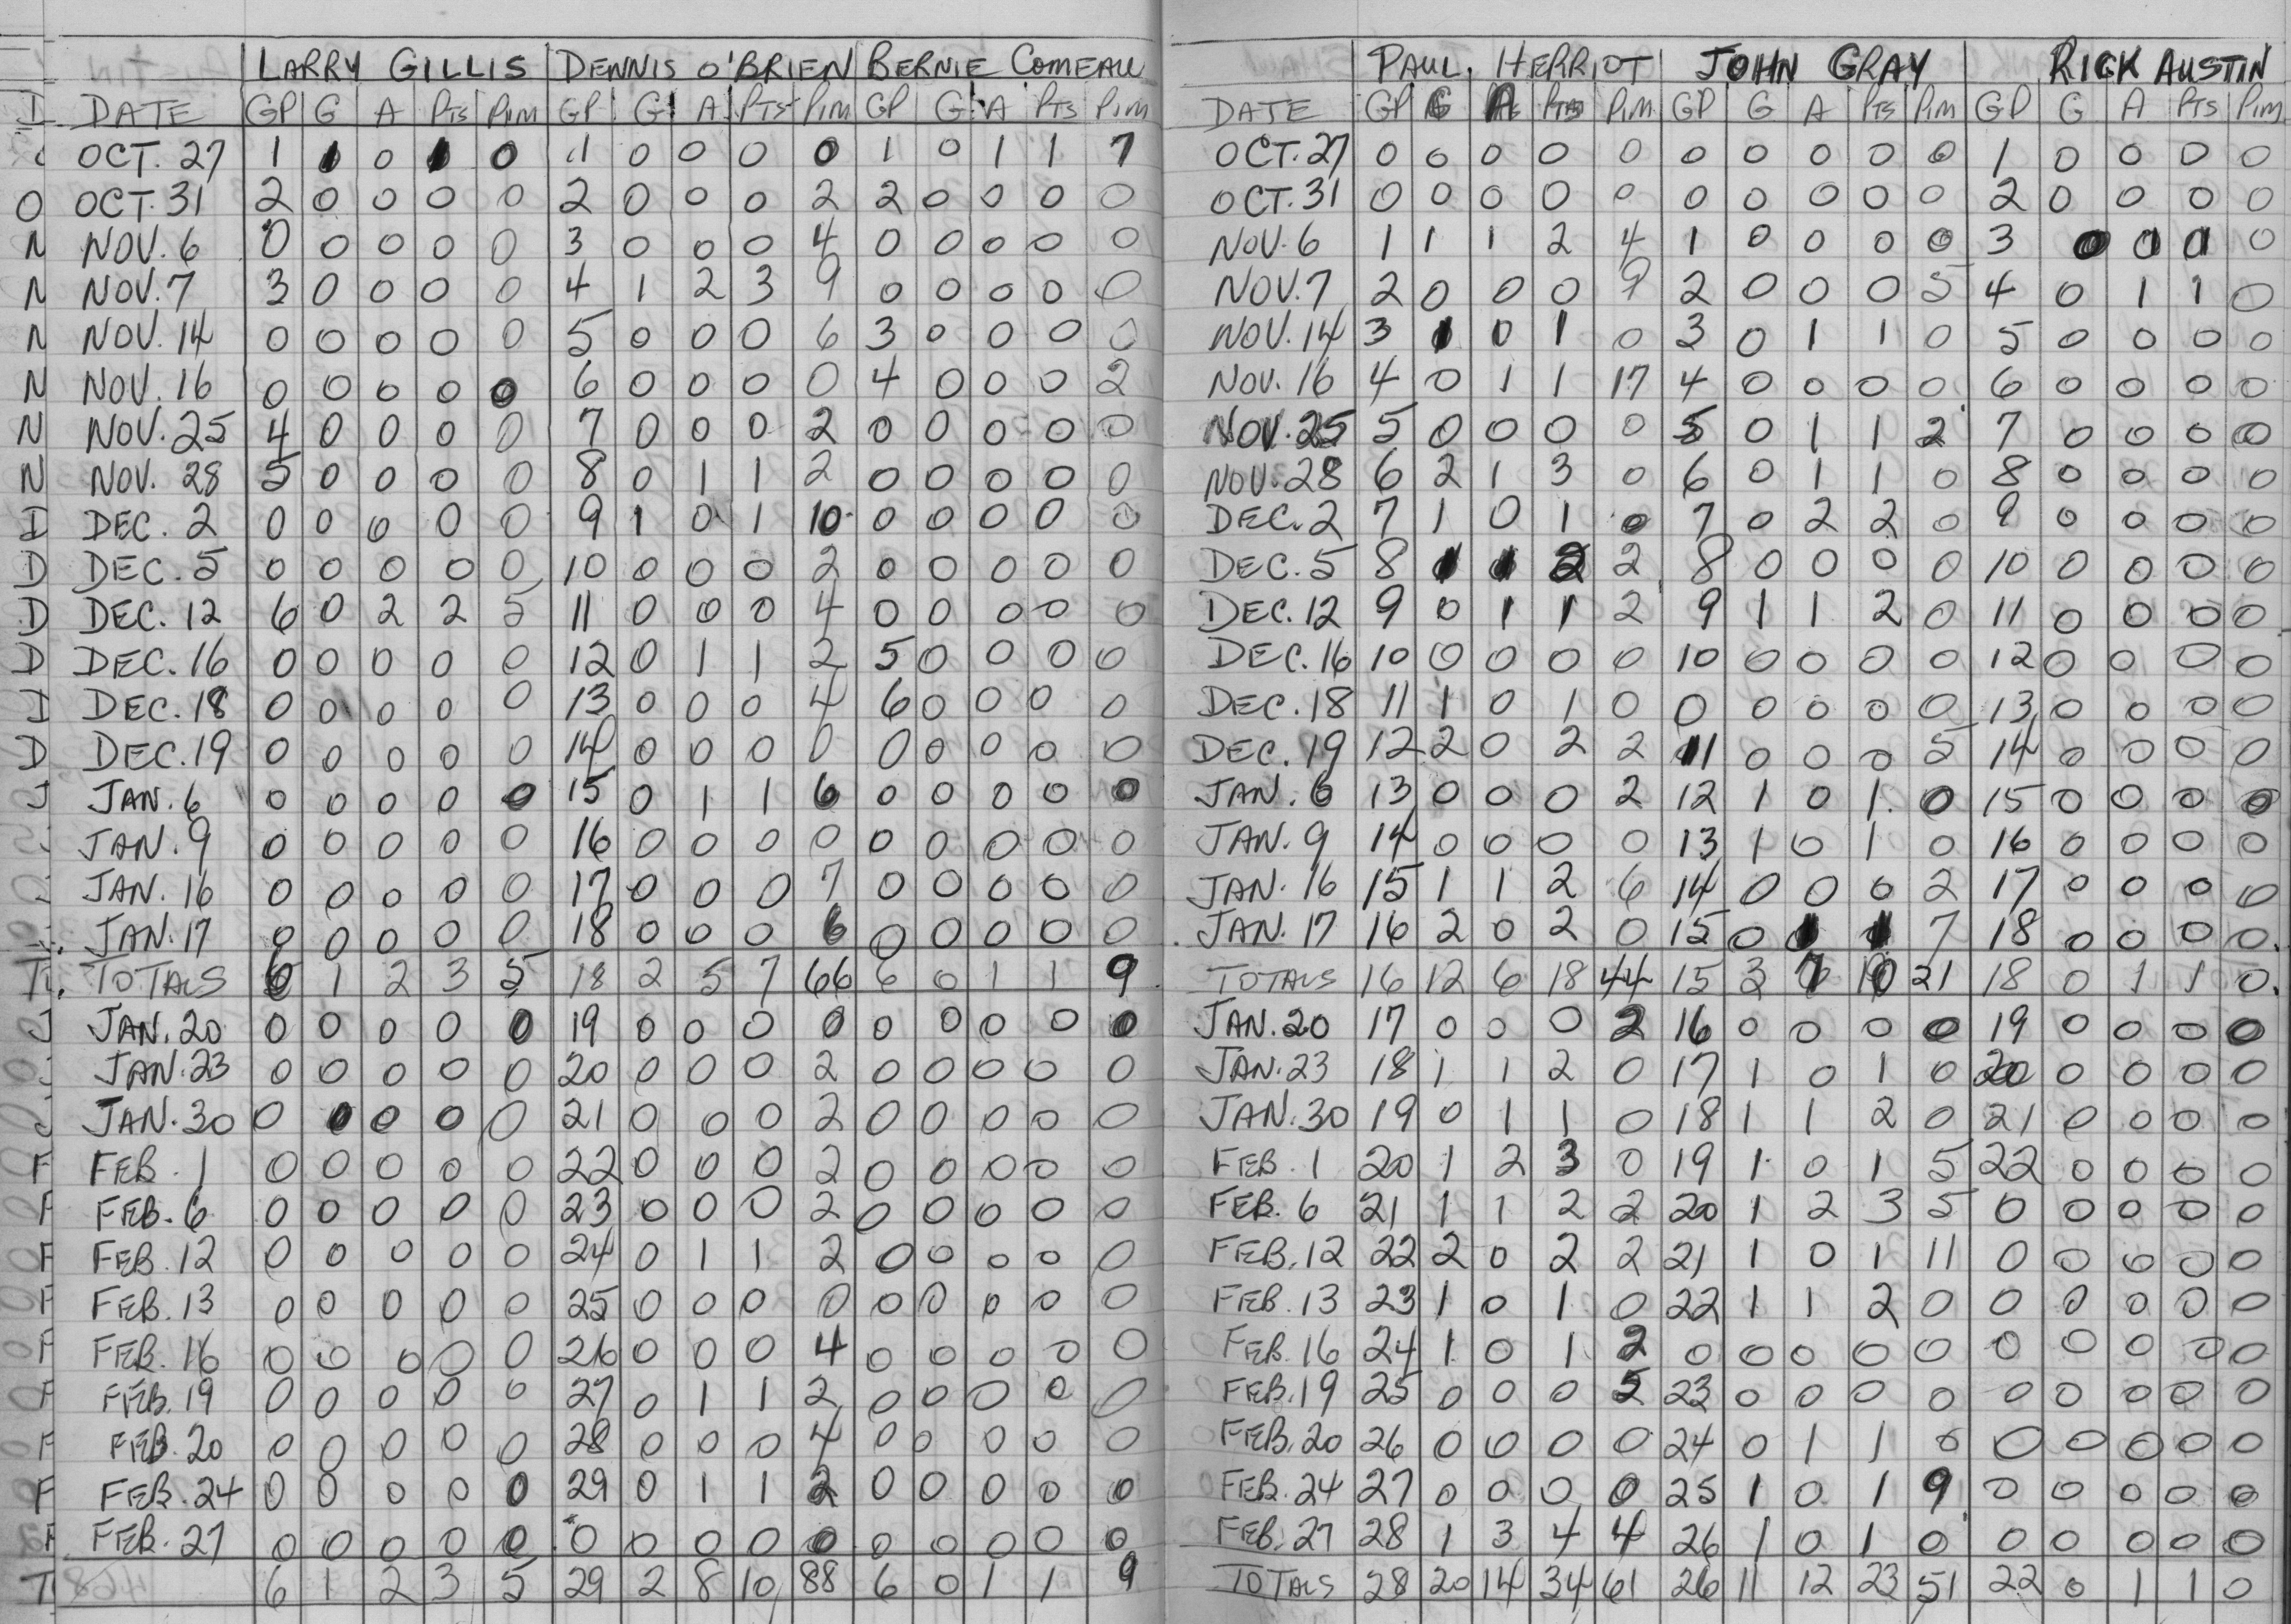 LARRY GILLIS DENNIS O'BRIEN BERNIE COMEAU
DATE GP G A Pts Pim GP G A Pts Pim GP G A Pts Pim
OCT. 27 1 1 0 1 0 1 0 0 0 0 1 0 1 1 7
OCT. 31 2 0 0 0 0 2 0 0 0 2 2 0 0 0 0
NOV. 6 0 0 0 0 0 3 0 0 0 4 0 0 0 0 0
NOV. 7 3 0 0 0 0 4 1 2 3 9 0 0 0 0 0
NOV. 14 0 0 0 0 0 5 0 0 0 6 3 0 0 0 0
NOV. 16 0 0 0 0 0 6 0 0 0 0 4 0 0 0 2
NOV. 25 4 0 0 0 0 7 0 0 0 2 0 0 0 0 0
NOV. 28 5 0 0 0 0 8 0 1 1 2 0 0 0 0 0
DEC. 2 0 0 0 0 0 9 1 0 1 10 0 0 0 0 0
DEC. 5 0 0 0 0 0 10 0 0 0 2 0 0 0 0 0
DEC. 12 6 0 2 2 5 11 0 0 0 4 0 0 0 0 0
DEC. 16 0 0 0 0 0 12 0 1 1 2 5 0 0 0 0
DEC. 18 0 0 0 0 0 13 0 0 0 4 6 0 0 0 0
DEC. 19 0 0 0 0 0 14 0 0 0 0 0 0 0 0 0
JAN. 6 0 0 0 0 0 15 0 1 1 6 0 0 0 0 0
JAN. 9 0 0 0 0 0 16 0 0 0 0 0 0 0 0 0
JAN. 16 0 0 0 0 0 17 0 0 0 7 0 0 0 0 0
JAN. 17 0 0 0 0 0 18 0 0 0 6 0 0 0 0 0
TOTALS 6 1 2 3 5 18 2 5 7 66 6 0 1 1 9
JAN. 20 0 0 0 0 0 19 0 0 0 0 0 0 0 0 0
JAN. 23 0 0 0 0 0 20 0 0 0 2 0 0 0 0 0
JAN. 30 0 0 0 0 0 21 0 0 0 2 0 0 0 0 0
FEB. 1 0 0 0 0 0 22 0 0 0 2 0 0 0 0 0
FEB. 6 0 0 0 0 0 23 0 0 0 2 0 0 0 0 0
FEB. 12 0 0 0 0 0 24 0 1 1 2 0 0 0 0 0
FEB. 13 0 0 0 0 0 25 0 0 0 0 0 0 0 0 0
FEB. 16 0 0 0 0 0 26 0 0 0 4 0 0 0 0 0
FEB. 19 0 0 0 0 0 27 0 1 1 2 0 0 0 0 0
FEB. 20 0 0 0 0 0 28 0 0 0 4 0 0 0 0 0
FEB. 24 0 0 0 0 0 29 0 1 1 2 0 0 0 0 0
FEB. 27 0 0 0 0 0 0 0 0 0 0 0 0 0 0 0
6 1 2 3 5 29 2 8 10 88 6 0 1 1 9
PAUL HERRIOT JOHN GRAY RICK AUSTIN
DATE GP G A Pts Pim GP G A Pts Pim GP G A Pts Pim
OCT. 27 0 0 0 0 0 0 0 0 0 0 1 0 0 0 0
OCT. 31 0 0 0 0 0 0 0 0 0 0 2 0 0 0 0
NOV. 6 1 1 1 2 4 1 0 0 0 0 3 0 0 0 0
NOV. 7 2 0 0 0 9 2 0 0 0 5 4 0 1 1 0
NOV. 14 3 1 0 1 0 3 0 1 1 0 5 0 0 0 0
NOV. 16 4 0 1 1 17 4 0 0 0 0 6 0 0 0 0
NOV. 25 5 0 0 0 0 5 0 1 1 2 7 0 0 0 0
NOV. 28 6 2 1 3 0 6 0 1 1 0 8 0 0 0 0
DEC. 2 7 1 0 1 0 7 0 2 2 0 9 0 0 0 0
DEC. 5 8 1 1 2 2 8 0 0 0 0 10 0 0 0 0
DEC. 12 9 0 1 1 2 9 1 1 2 0 11 0 0 0 0
DEC. 16 10 0 0 0 0 10 0 0 0 0 12 0 0 0 0
DEC. 18 11 1 0 1 0 0 0 0 0 0 13 0 0 0 0
DEC. 19 12 2 0 2 2 11 0 0 0 5 14 0 0 0 0
JAN. 6 13 0 0 0 2 12 1 0 1 0 15 0 0 0 0
JAN. 9 14 0 0 0 0 13 1 0 1 0 16 0 0 0 0
JAN. 16 15 1 1 2 6 14 0 0 0 2 17 0 0 0 0
JAN. 17 16 2 0 2 0 15 0 1 1 7 18 0 0 0 0
TOTALS 16 12 6 18 44 15 3 7 10 21 18 0 1 1 0
JAN. 20 17 0 0 0 2 16 0 0 0 0 19 0 0 0 0
JAN. 23 18 1 1 2 0 17 1 0 1 0 20 0 0 0 0
JAN. 30 19 0 1 1 0 18 1 1 2 0 21 0 0 0 0
FEB. 1 20 1 2 3 0 19 1 0 1 5 22 0 0 0 0
FEB. 6 21 1 1 2 2 20 1 2 3 5 0 0 0 0 0
FEB. 12 22 2 0 2 2 21 1 0 1 11 0 0 0 0 0
FEB. 13 23 1 0 1 0 22 1 1 2 0 0 0 0 0 0
FEB. 16 24 1 0 1 2 0 0 0 0 0 0 0 0 0 0
FEB. 19 25 0 0 0 5 23 0 0 0 0 0 0 0 0 0
FEB. 20 26 0 0 0 0 24 0 1 1 0 0 0 0 0 0
FEB. 24 27 0 0 0 0 25 1 0 1 9 0 0 0 0 0
FEB. 27 28 1 3 4 4 26 1 0 1 0 0 0 0 0 0
TOTALS 28 20 14 34 61 26 11 12 23 51 22 0 1 1 0